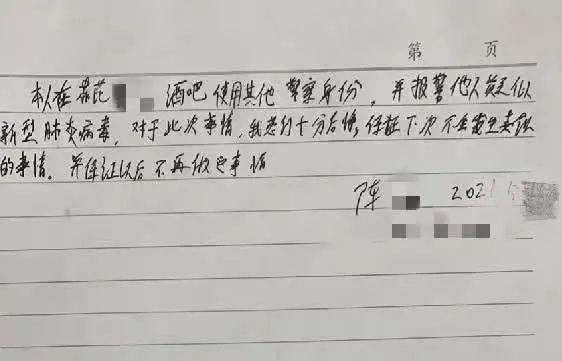 第 页
本人在苏茝 酒吧使用其他警察身份，并报警他人疑似
新型肺炎病毒，对于此次事情，我感到十分后悔，保证下次不会发生类似
的事情。并保证以后不再做 事情
陈 2021